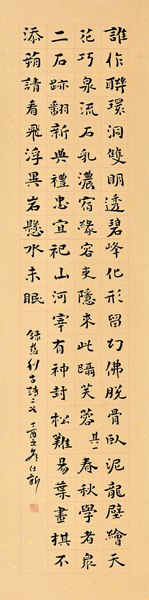 誰作聯環洞雙明透碧峰化形留幻佛脫骨臥泥龍壁繪天
花巧泉流石乳濃宿緣容吏隱來此躡芙蓉其一春秋學者衆
二石跡翻新典禮忠宜祀山河宰有神封松難易葉畫棋不
添蒻請看飛浮異岩懸水未眠
錄慈利古詩二首 丁酉之 仕新